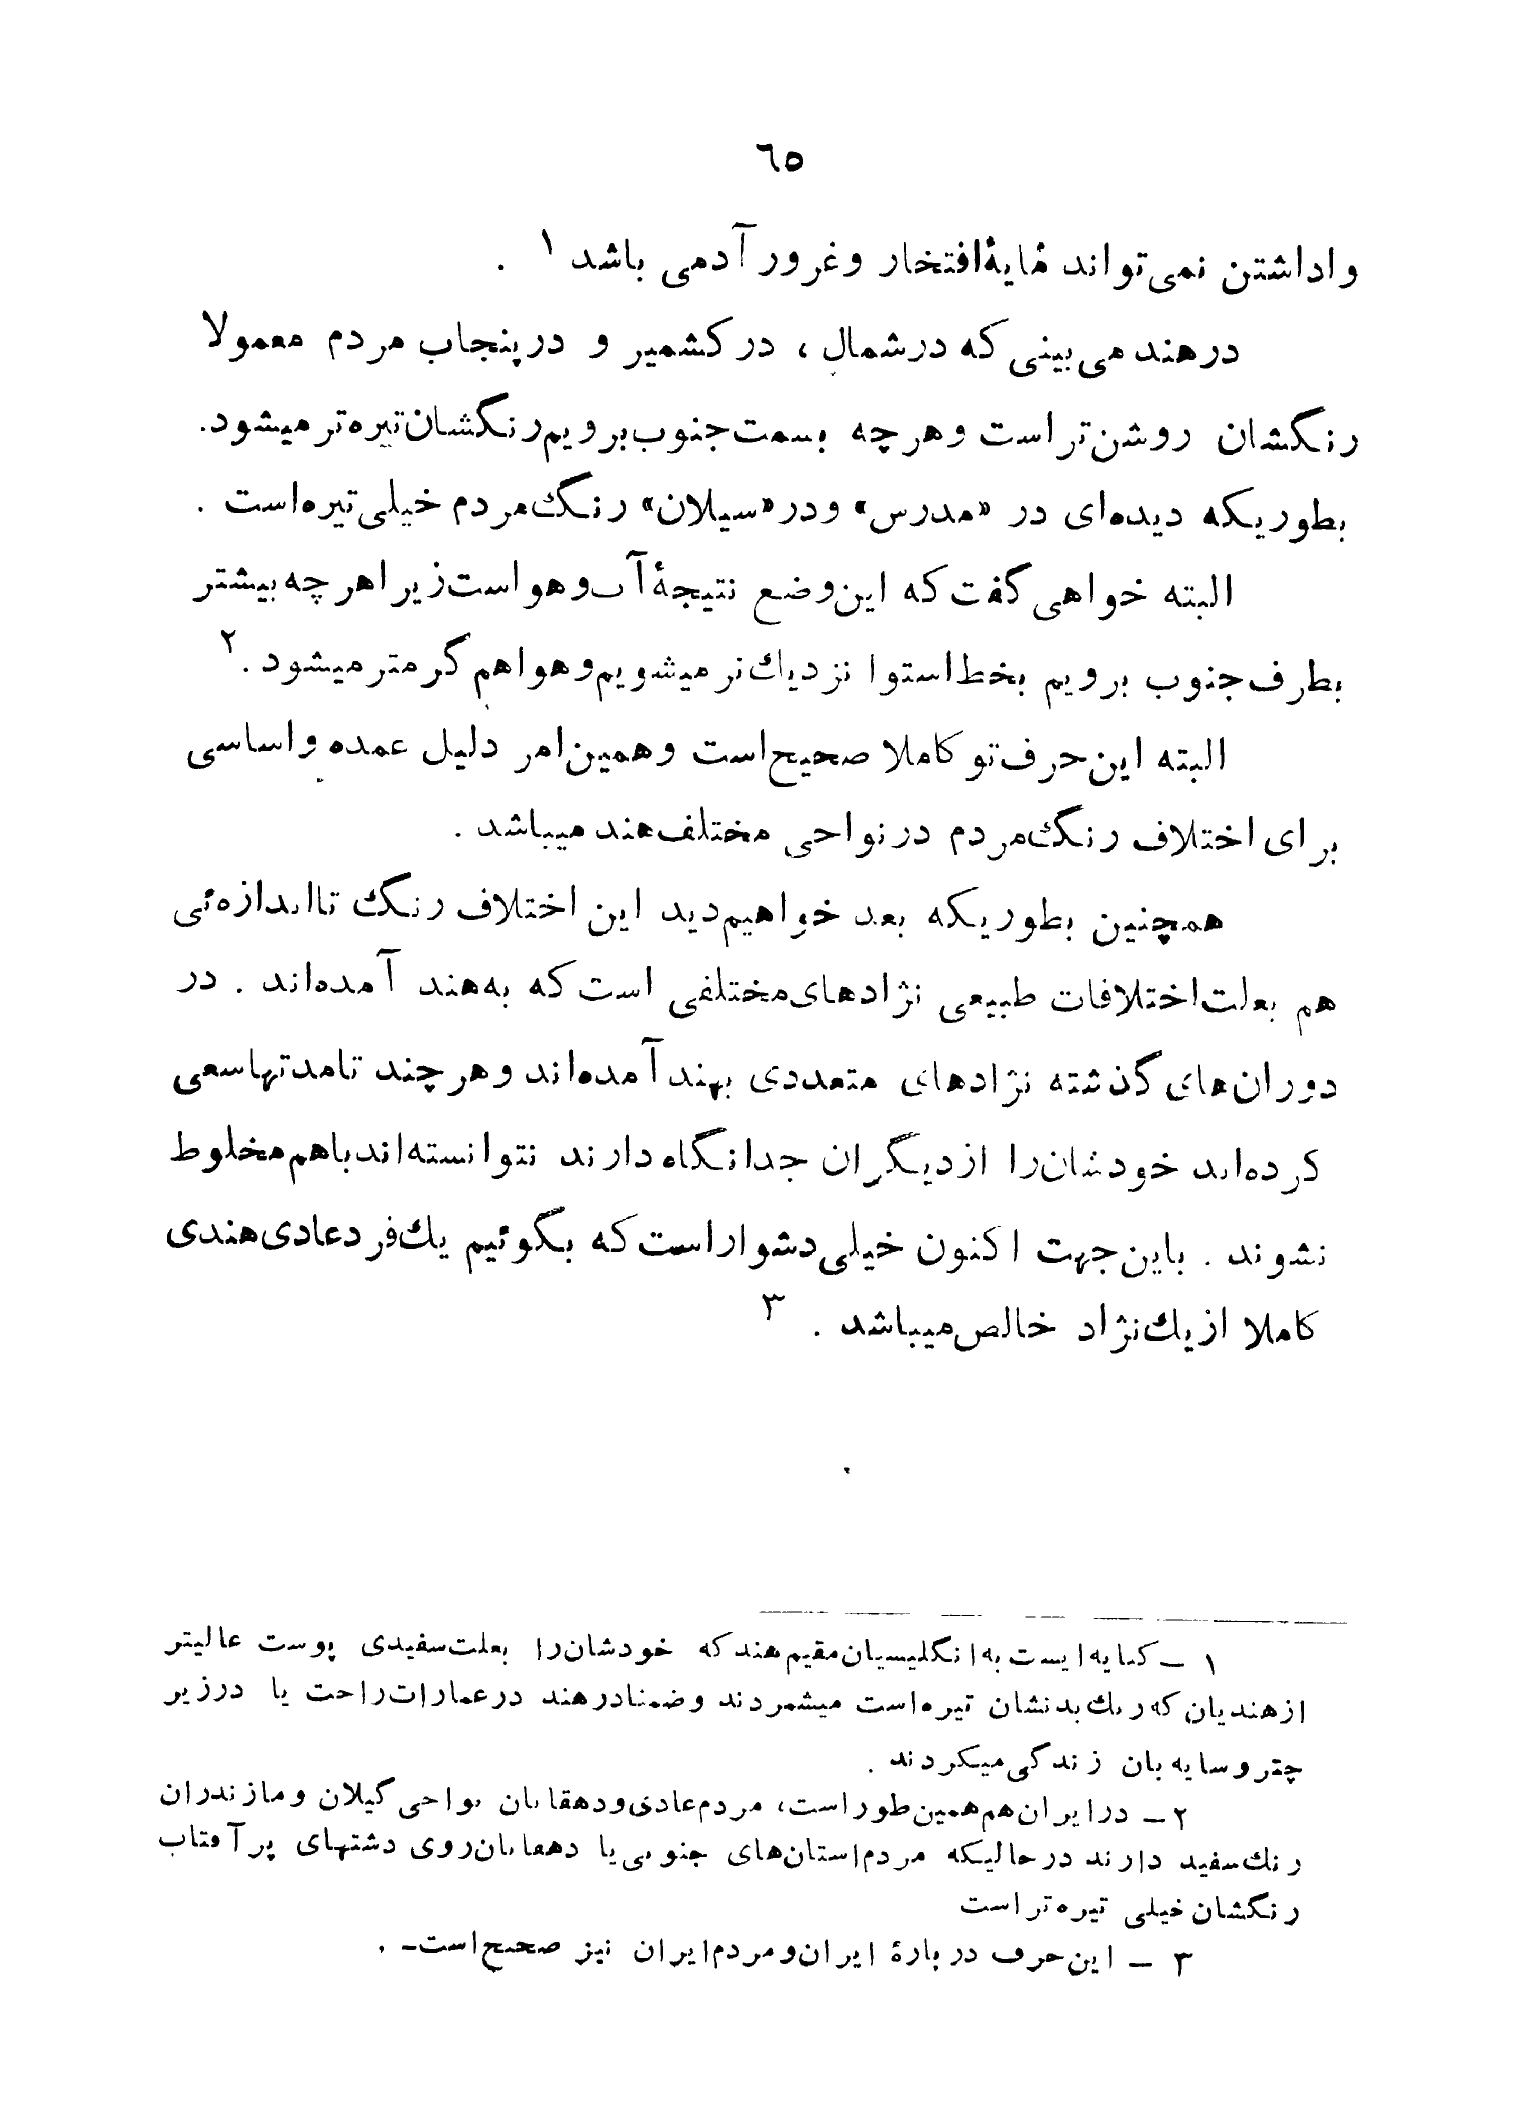 ٦٥
واداشتن نمی‌تواند مایهٔ افتخار و غرور آدمی باشد ۱ .
در هند می‌بینی که در شمال ، در کشمیر و در پنجاب مردم معمولا
رنگشان روشن‌تر است و هر چه بسمت جنوب برویم رنگشان تیره‌تر میشود.
بطوریکه دیده‌ای در «مدرس» و در «سیلان» رنگ مردم خیلی تیره است .
البته خواهی گفت که این وضع نتیجهٔ آب و هواست زیرا هر چه بیشتر
بطرف جنوب برویم بخط استوا نزدیك‌تر میشویم و هوا هم گرمتر میشود . ۲
البته این حرف تو کاملا صحیح است و همین امر دلیل عمده و اساسی
برای اختلاف رنگ مردم در نواحی مختلف هند میباشد .
همچنین بطوریکه بعد خواهیم دید این اختلاف رنگ تا اندازه‌ئی
هم بعلت اختلافات طبیعی نژادهای مختلفی است که به هند آمده‌اند . در
دوران‌های گذشته نژادهای متعددی بهند آمده‌اند و هر چند تا مدتها سعی
کرده‌اند خودشان را از دیگران جدا نگاه دارند نتوانسته‌اند با هم مخلوط
نشوند . باین جهت اکنون خیلی دشوار است که بگوئیم یك فرد عادی هندی
کاملا از یك نژاد خالص میباشد . ۳
۱ ـ کنایه ایست به انگلیسیان مقیم هند که خودشان را بعلت سفیدی پوست عالیتر
از هندیان که رنك بدنشان تیره است میشمردند و ضمنا در هند در عمارات راحت یا در زیر
چتر و سایه بان زندگی میکردند .
۲ ـ در ایران هم همین طور است، مردم عادی و دهقانان نواحی گیلان و مازندران
رنك سفید دارند در حالیکه مردم استان‌های جنوبی یا دهقانان روی دشتهای پر آفتاب
رنگشان خیلی تیره‌تر است
۳ ـ این حرف در بارهٔ ایران و مردم ایران نیز صحیح است ـ .